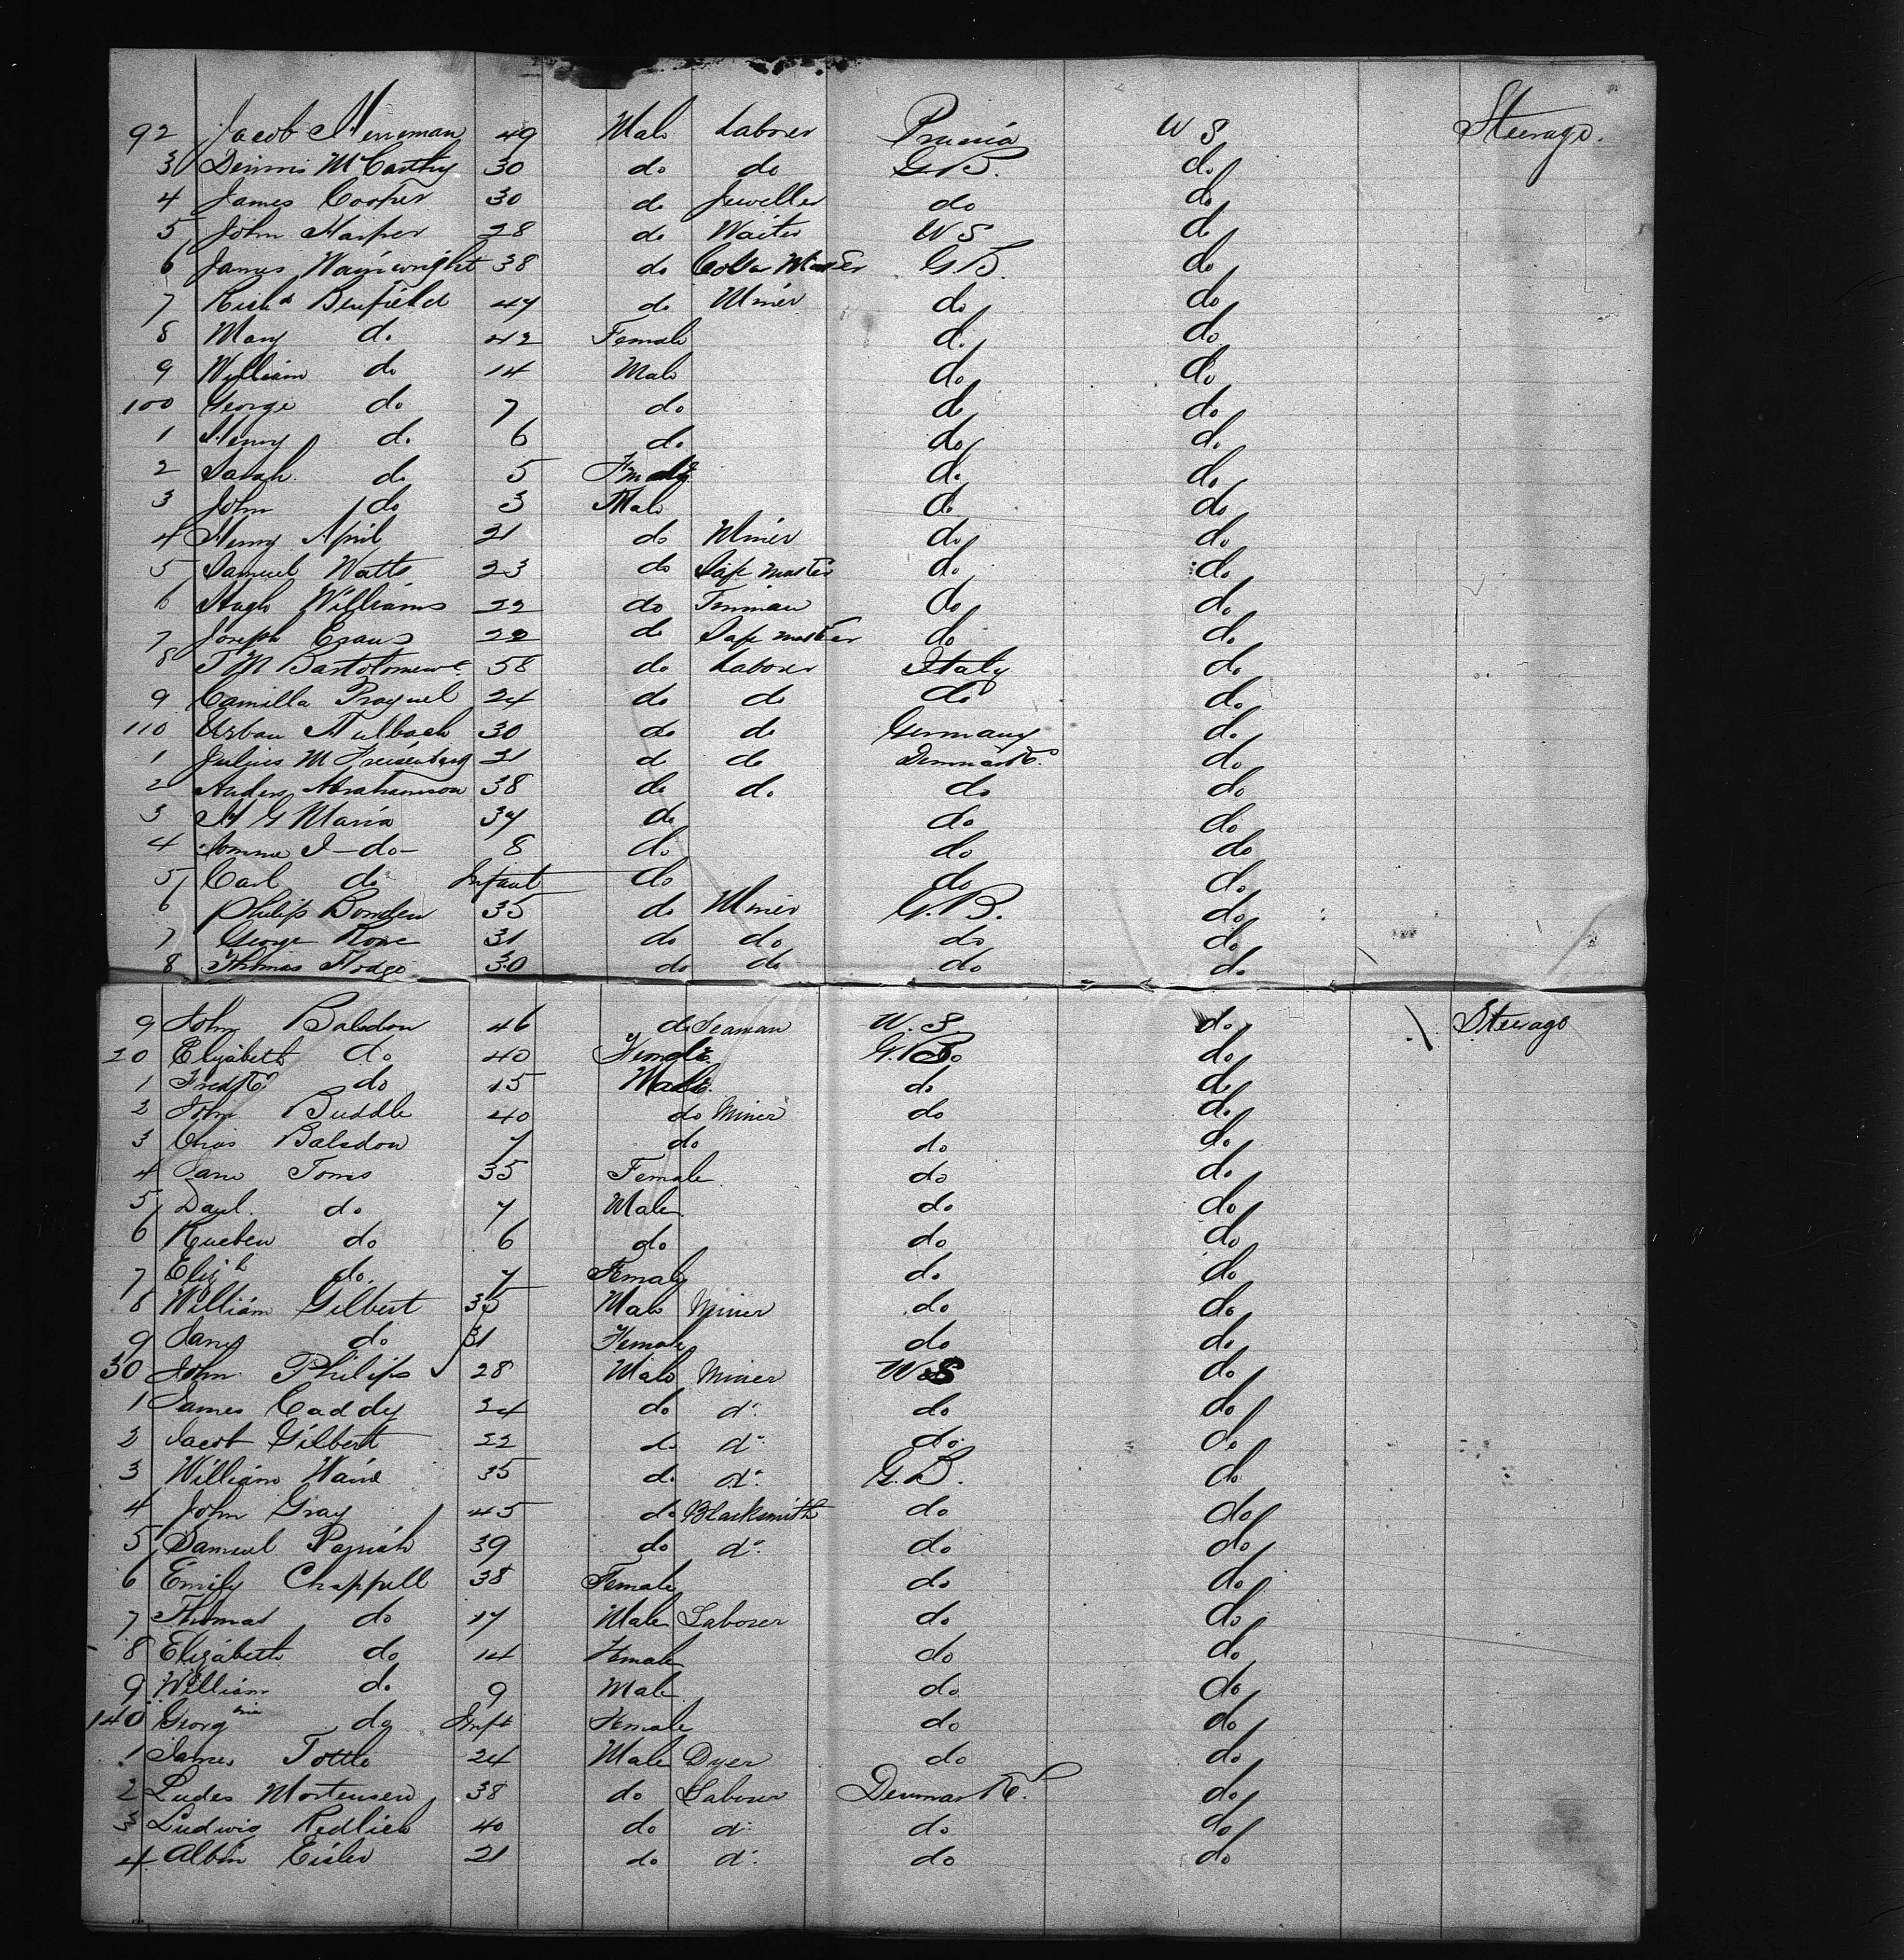 92 Jacob Merreman 49 Male Laborer Prussia U S Steerage.
3 Dennis McCarthy 30 do do G.B. do
4 James Cooper 30 do Jeweller do do
5 John Harper 28 do Waiter U S do
6 James Wainwright 38 do G B. do
7 Richd Benfield 47 do Miner do do
8 Mary do 42 Female do do
9 William do 14 Male do do
100 George do 7 do do do
1 Henry do 6 do do do
2 Sarah do 5 Female do do
3 John do 3 Male do do
4 Henry April 21 do Miner do do
5 Samuel Watts 23 do master do do
6 Hugh Williams 22 do Tinman do do
7 Joseph Evans 22 do master do do
8 T M 58 do Laborer Italy do
9 Camilla 24 do do do do
110 Urban 30 do do Germany do
1 Julius M 21 do do Denmark do
2 Anders Abrahamson 38 do do do do
3 H G Maria 37 do do do
4 -do- 8 do do do
5 Carl do Infant do do do
6 Philip Bowden 35 do Miner G.B. do
7 George Rowe 31 do do do do
8 Thomas Hodge 30 do do do do
9 John Balsdon 46 do Seaman U.S. do Steerage
20 Elizabeth do 40 Female G.B. do
1 Fredk do 15 Male do do
2 John Buddle 40 do Miner do do
3 Chas Balsdon 7 do do do
4 Jane Toms 35 Female do do
5 Danl. do 7 Male do do
6 Rueben do 6 do do do
7 Elizh do 7 Female do do
8 William Gilbert 35 Male Miner do do
9 Jane do 31 Female do do
30 John Philips 28 Male Miner U S do
1 James Caddy 24 do do do do
2 Jacob Gilbert 22 do do do do
3 William 35 do do G.B. do
4 John Gray 45 do Blacksmith do do
5 Samuel Parrish 39 do do do do
6 Emily Chappell 38 Female do do
7 Thomas do 17 Male Laborer do do
8 Elizabeth do 14 Female do do
9 William do 9 Male do do
140 Georginia do Inft Female do do
1 James Tottle 24 Male Dyer do do
2 Ludes Mortensen 38 do Laborer Denmark. do
3 Ludwig Redlich 40 do do do do
4 Albin Eisler 21 do do do do